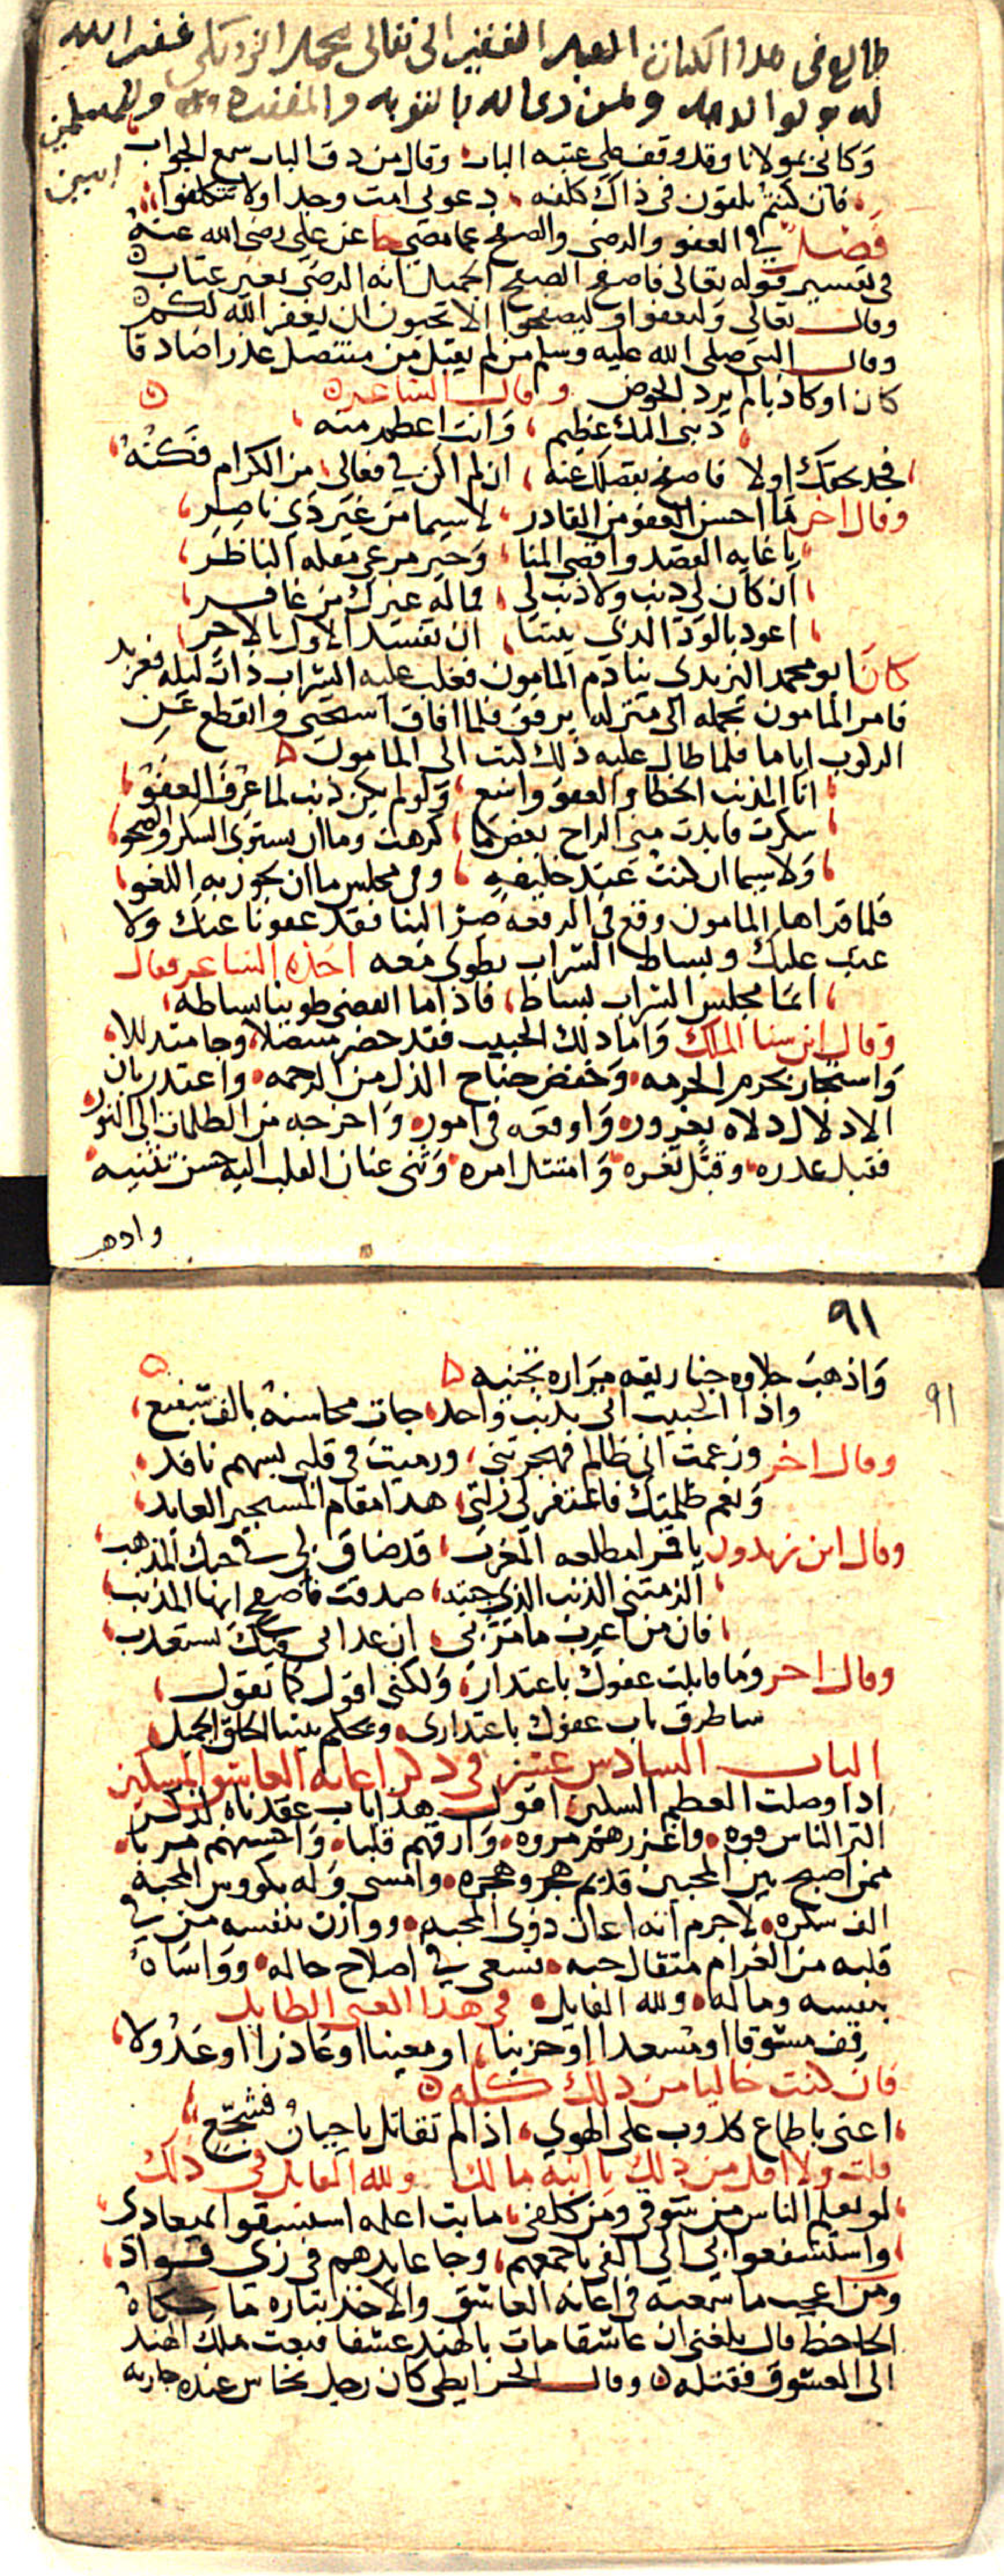 طالع فى هدا الكتاب العبد الفقير الى تعالى محمد غفر الله
له ولوالديه ولمن دعى له بالتوبه والمغفره وللمسلمين
امين
وكانى بمولانا وقد وقف على عتبه الباب وقال من دق الباب سمع الجواب
فان كنتم تلقون فى ذاك كلفه دعونى امت وجدا ولا تتكلفوا
فصل فى العفو والرضى والصفح عما مضى جا عن على رضى الله عنه
فى تفسير قوله تعالى فاصفح الصفح الجميل انه الرضى بغير عتاب
وقال تعالى وليعفوا وليصفحوا الا تحبون ان يغفر الله لكم
وقال النبى صلى الله عليه وسلم من لم يقبل من متنصل عذرا صادقا
كان او كاذبا لم يرد الحوض وقال الشاعر
ذنبى اليك عظيم وانت اعظم منه
فجد بحقك اولا فاصفح بفضلك عنه ان لم اكن فى فعالى من الكرام فكنه
وقال اخر ما احسن العفو من القادر لا سيما من غير ذى ناصر
يا غايه القصد واقصى المنا وخير مرعى مقله الناظر
ان كان لى ذنب ولا ذنب لى فما له غيرك من غافر
اعوذ بالود الذى بيننا ان يفسد الاول بالاخر
كان ابو محمد اليزيدى ينادم المامون فغلب عليه الشراب ذات ليله فعربد
فامر المامون بحمله الى منزله برفق فلما افاق استحيى وانقطع عن
الركوب اياما فلما طال عليه ذلك كتب الى المامون
انا المذنب الخطا والعفو واسع ولو لم يكن ذنب لما عرف العفو
سكرت فابدت منى الراح بعض ما كرهت وما ان يستوى السكر والصحو
ولا سيما ان كنت عند خليفه وفى مجلس ما ان يجوز به اللغو
فلما قراها المامون وقع فى الرقعه صر الينا فقد عفونا عنك ولا
عتب عليك وبساط الشراب يطوى معه اخذه الشاعر فقال
انما مجلس الشراب بساط فاذا ما انقضى طوينا بساطه
وقال ابن سنا الملك واما ذلك الحبيب فقد حضر متنصلا وجا متذللا
واستجار بحرم الحرمه وخفض جناح الذل من الرحمه واعتذر بان
الادلال دلاه بغروره واوقعه فى اموره واخرجه من الظلمات الى النور
فقبل عذره وقبل ثغره وامتثل امره وثنى عنان القلب اليه حسن تثنيه
واذهب
٩١
91
واذهب حلاوه جنا ريقه مراره تجنيه
واذا الحبيب اتى بذنب واحد جات محاسنه بالف شفيع
وقال اخر وزعمت انى ظالم فهجرتنى ورميت فى قلبى بسهم نافذ
ونعم ظلمتك فاغتفر لى زلتى هذا مقام المستجير العايذ
وقال ابن زيدون يا قمرا مطلعه المغرب قد ضاق بى فى حبك المذهب
الزمتنى الذنب الذى جيته صدقت فاصفح ايها المذنب
فان من اغرب ما مر بى ان عذابى فيك مستعذب
وقال اخر وما قابلت عفوك باعتذار ولكنى اقول كما تقول
ساطرق باب عفوك باعتذارى ويحكم بيننا الخلق الجميل
الباب السادس عشر فى ذكر اعانه العاشق المسكين
اذا وصلت العظم السكين اقول هذا باب عقدناه لذكر
اكثر الناس فتوه واغزرهم مروه وارقهم قلبا واحسنهم مربا
ممن اصبح بين المحبين قديم هجر وهجره وامسى وله بكووس المحبه
الف سكره لا جرم انه اعان ذوى المحبه ووازن بنفسه من فى
قلبه من الغرام مثقال حبه فسعى فى اصلاح حاله وواساه
بنفسه وماله ولله القايل فى هذا المعنى الطايل
قف مشوقا او مسعدا او حزينا او معينا او عاذرا او عذولا
فان كنت خاليا من ذلك كله
اعنى باطماع كذوب على الهوى اذا لم تقاتل يا جبان فشجع
قلت ولا اقل من ذلك يا ابنه مالك ولله القايل فى ذلك
لو يعلم الناس من شوقى ومن كلفى ما بت اعلمه استبقوا لميعادى
واستشفعوا بى الى الفى باجمعهم وجا عابدهم فى زى قواد
ومن اعجب ما سمعته فى اعانه العاشق والاخذ بثاره ما حكاه
الجاحظ قال بلغنى ان عاشقا مات بالهند عشقا فبعث ملك الهند
الى المعشوق فقتله وقال الخرايطى كان رجل نخاس عنده جاريه